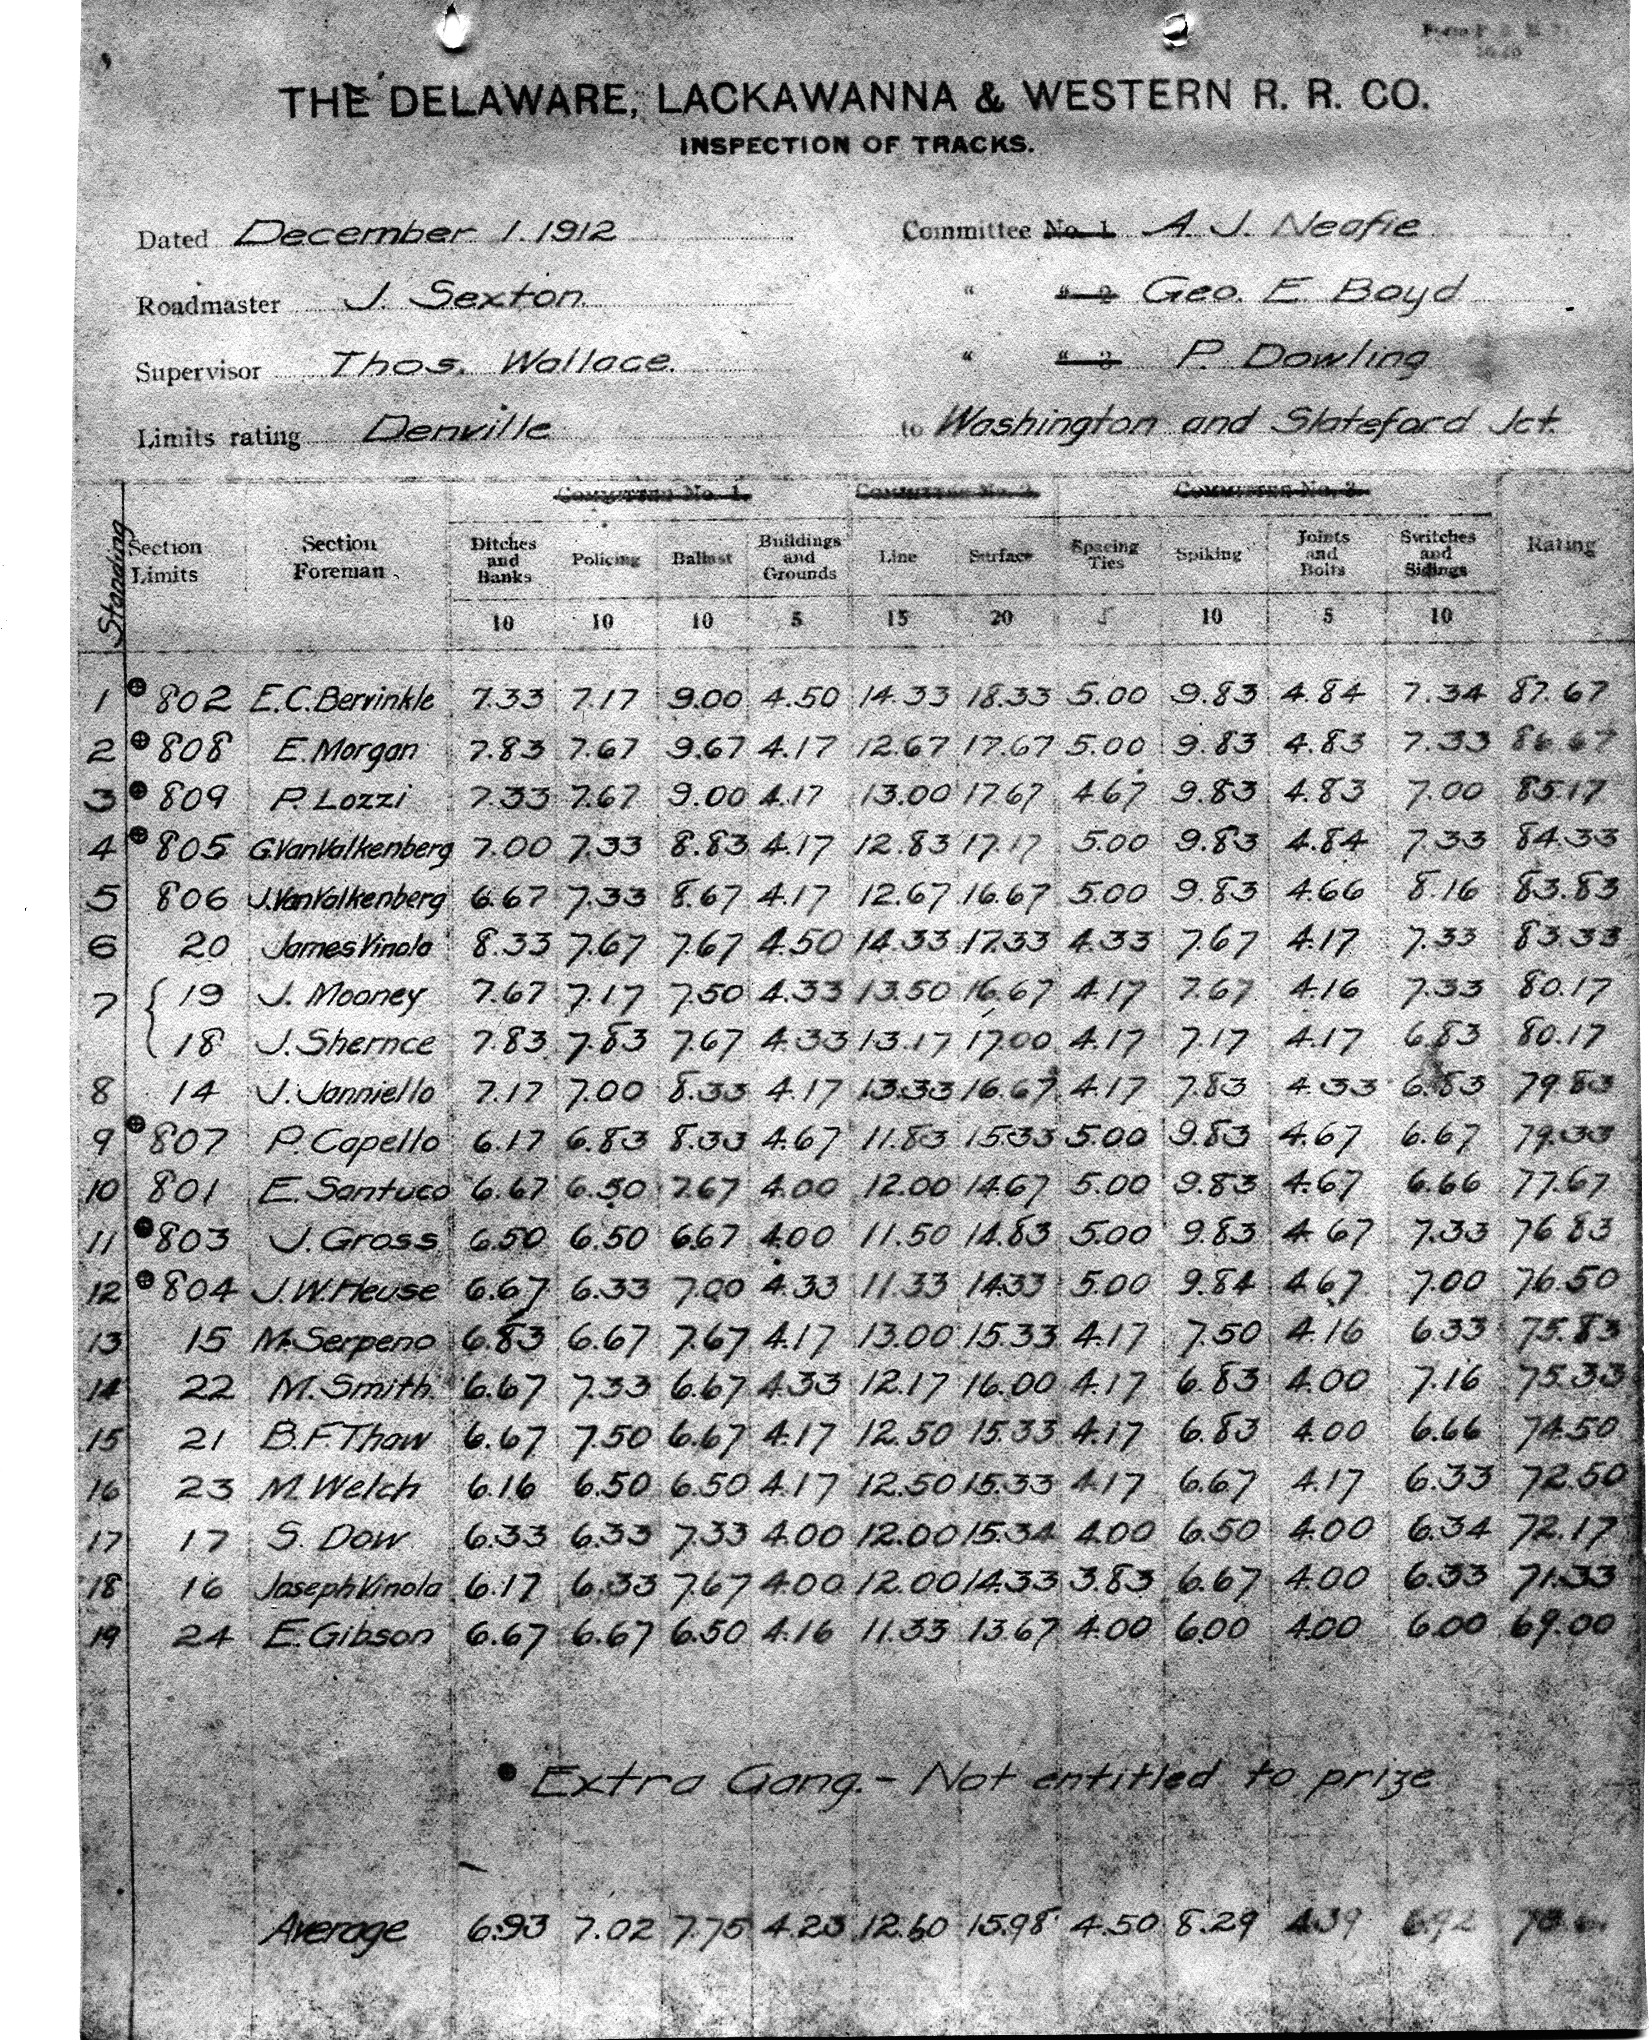 THE DELAWARE, LACKAWANNA & WESTERN R. R. CO.
INSPECTION OF TRACKS.
Dated December 1. 1912 Committee No. 1 A. J. Neafie
Roadmaster J. Sexton " " 2 Geo. E. Boyd
Supervisor Thos. Wallace. " " 3 P. Dowling
Limits rating Denville to Washington and Slateford Jct.
Committee No. 1. Committee No. 2. Committee No. 3.
Standing Section Limits Section Foreman Ditches and Banks Policing Ballast Buildings and Grounds Line Surface Spacing Ties Spiking Joints and Bolts Switches and Sidings Rating
10 10 10 5 15 20 5 10 5 10
1 ⊕ 802 E.C. Bervinkle 7.33 7.17 9.00 4.50 14.33 18.33 5.00 9.83 4.84 7.34 87.67
2 ⊕ 808 E. Morgan 7.83 7.67 9.67 4.17 12.67 17.67 5.00 9.83 4.83 7.33 86.67
3 ⊕ 809 P. Lozzi 7.33 7.67 9.00 4.17 13.00 17.67 4.67 9.83 4.83 7.00 85.17
4 ⊕ 805 G. VanValkenberg 7.00 7.33 8.83 4.17 12.83 17.17 5.00 9.83 4.84 7.33 84.33
5 806 J. VanValkenberg 6.67 7.33 8.67 4.17 12.67 16.67 5.00 9.83 4.66 8.16 83.83
6 20 James Vinola 8.33 7.67 7.67 4.50 14.33 17.33 4.33 7.67 4.17 7.33 83.33
7 { 19 J. Mooney 7.67 7.17 7.50 4.33 13.50 16.67 4.17 7.67 4.16 7.33 80.17
18 J. Shernce 7.83 7.83 7.67 4.33 13.17 17.00 4.17 7.17 4.17 6.83 80.17
8 14 J. Janniello 7.17 7.00 8.33 4.17 13.33 16.67 4.17 7.83 4.33 6.83 79.83
9 ⊕ 807 P. Capello 6.17 6.83 8.33 4.67 11.83 15.33 5.00 9.83 4.67 6.67 79.33
10 801 E. Santuco 6.67 6.50 7.67 4.00 12.00 14.67 5.00 9.83 4.67 6.66 77.67
11 ⊕ 803 J. Gross 6.50 6.50 6.67 4.00 11.50 14.83 5.00 9.83 4.67 7.33 76.83
12 ⊕ 804 J.W. Heuse 6.67 6.33 7.00 4.33 11.33 14.33 5.00 9.84 4.67 7.00 76.50
13 15 M. Serpeno 6.83 6.67 7.67 4.17 13.00 15.33 4.17 7.50 4.16 6.33 75.83
14 22 M. Smith 6.67 7.33 6.67 4.33 12.17 16.00 4.17 6.83 4.00 7.16 75.33
15 21 B.F. Thaw 6.67 7.50 6.67 4.17 12.50 15.33 4.17 6.83 4.00 6.66 74.50
16 23 M. Welch 6.16 6.50 6.50 4.17 12.50 15.33 4.17 6.67 4.17 6.33 72.50
17 17 S. Dow 6.33 6.33 7.33 4.00 12.00 15.34 4.00 6.50 4.00 6.34 72.17
18 16 Joseph Vinola 6.17 6.33 7.67 4.00 12.00 14.33 3.83 6.67 4.00 6.33 71.33
19 24 E. Gibson 6.67 6.67 6.50 4.16 11.33 13.67 4.00 6.00 4.00 6.00 69.00
⊕ Extra Gang. - Not entitled to prize
Average 6.93 7.02 7.75 4.23 12.60 15.98 4.50 8.29 4.39 6.92